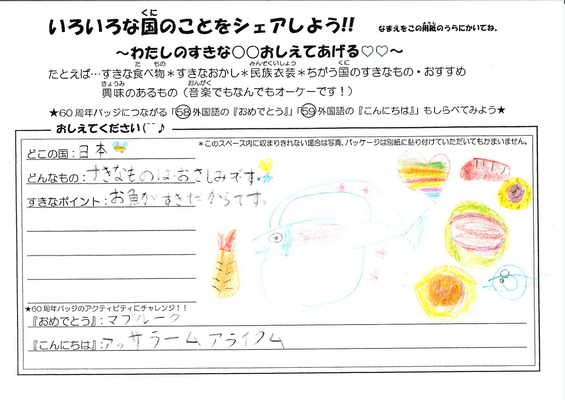 いろいろな国のことをシェアしよう!!
くに
なまえをこの用紙のうらにかいてね。
～わたしのすきな○○おしえてあげる♡♡～
たとえば…すきな食べ物＊すきなおかし＊民族衣装＊ちがう国のすきなもの・おすすめ
興味のあるもの（音楽でもなんでもオーケーです！）
★60周年バッジにつながる「58外国語の『おめでとう』」「59外国語の『こんにちは』」もしらべてみよう★
おしえてください(^^♪
＊このスペース内に収まりきれない場合は写真、パッケージは別紙に貼り付けていただいてもかまいません。
どこの国：日本
どんなもの：すきなものは、おさしみです。
すきなポイント：お魚がすきだからです。
★60周年バッジのアクティビティにチャレンジ！！
『おめでとう』：マブルーク
『こんにちは』：アッサラーム アライクム